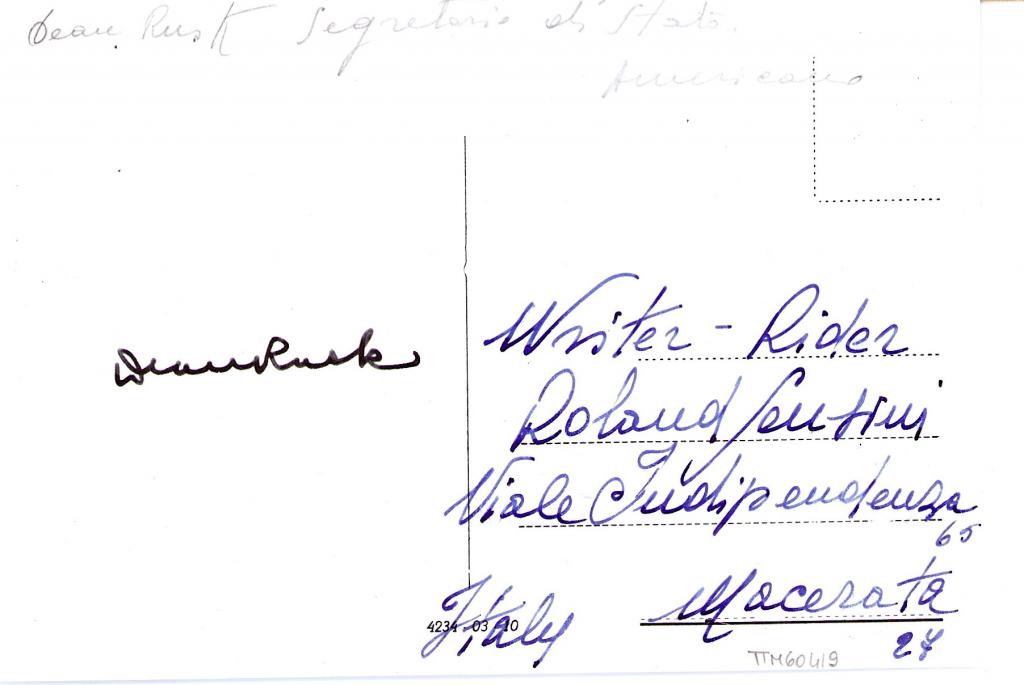 Dean Rusk Segretario di Stato
Americano
Dean Rusk
Writer - Rider
Roland Sensini
Viale Indipendenza
65
Italy Macerata
4234 03 10
27
TTM60419